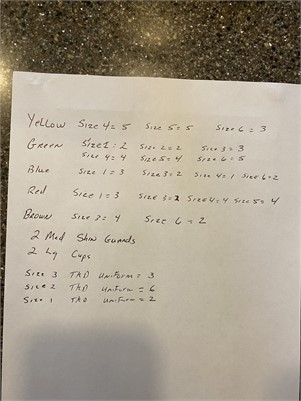 Yellow Size 4 = 5 Size 5 = 5 Size 6 = 3
Green Size 1 = 2 Size 2 = 2 Size 3 = 3
Size 4 = 4 Size 5 = 4 Size 6 = 5
Blue Size 1 = 3 Size 3 = 2 Size 4 = 1 Size 6 = 2
Red Size 1 = 3 Size 3 = 2 Size 4 = 4 Size 5 = 4
Brown Size 3 = 4 Size 6 = 2
2 Med Shin Guards
2 Lg Cups
Size 3 TKD Uniform = 3
Size 2 TKD Uniform = 6
Size 1 TKD Uniform = 2